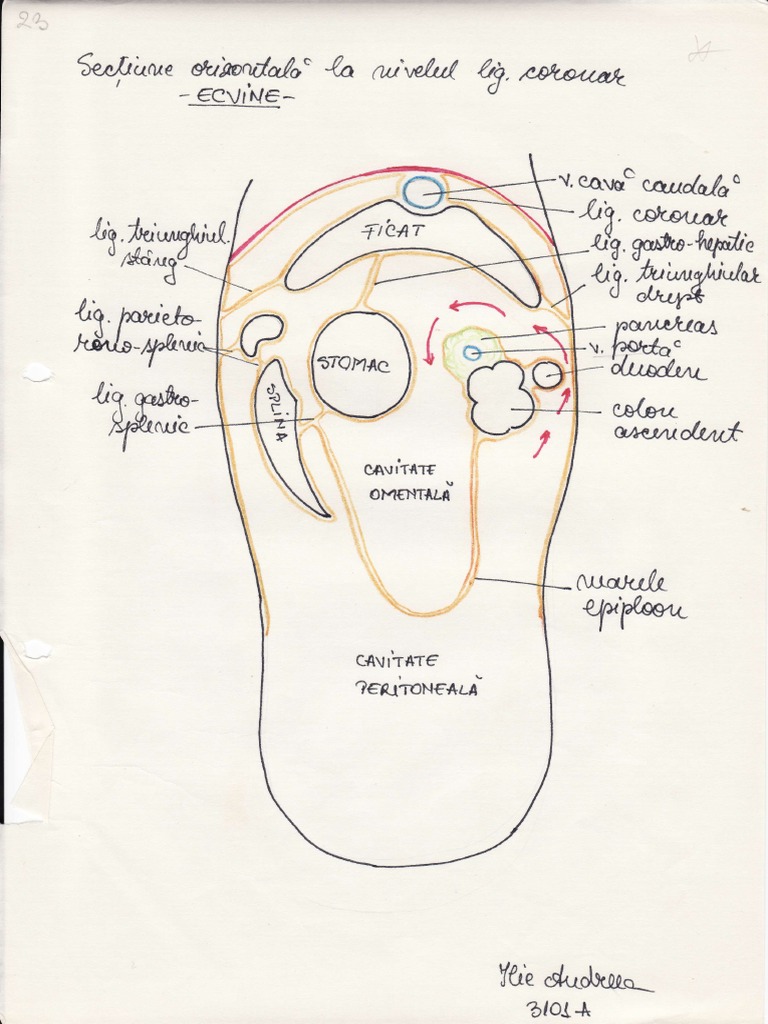 23
Secțiune orizontală la nivelul lig. coronar
- ECVINE -
v. cavă caudală
lig. coronar
lig. gastro-hepatic
lig. triunghiular
drept
pancreas
v. portă
duoden
colon
ascendent
lig. triunghiul.
stâng
lig. parieto-
reno-splenic
lig. gastro-
splenic
FICAT
STOMAC
SPLINA
CAVITATE
OMENTALĂ
marele
epiploon
CAVITATE
PERITONEALĂ
Ilie Andreea
3101-A